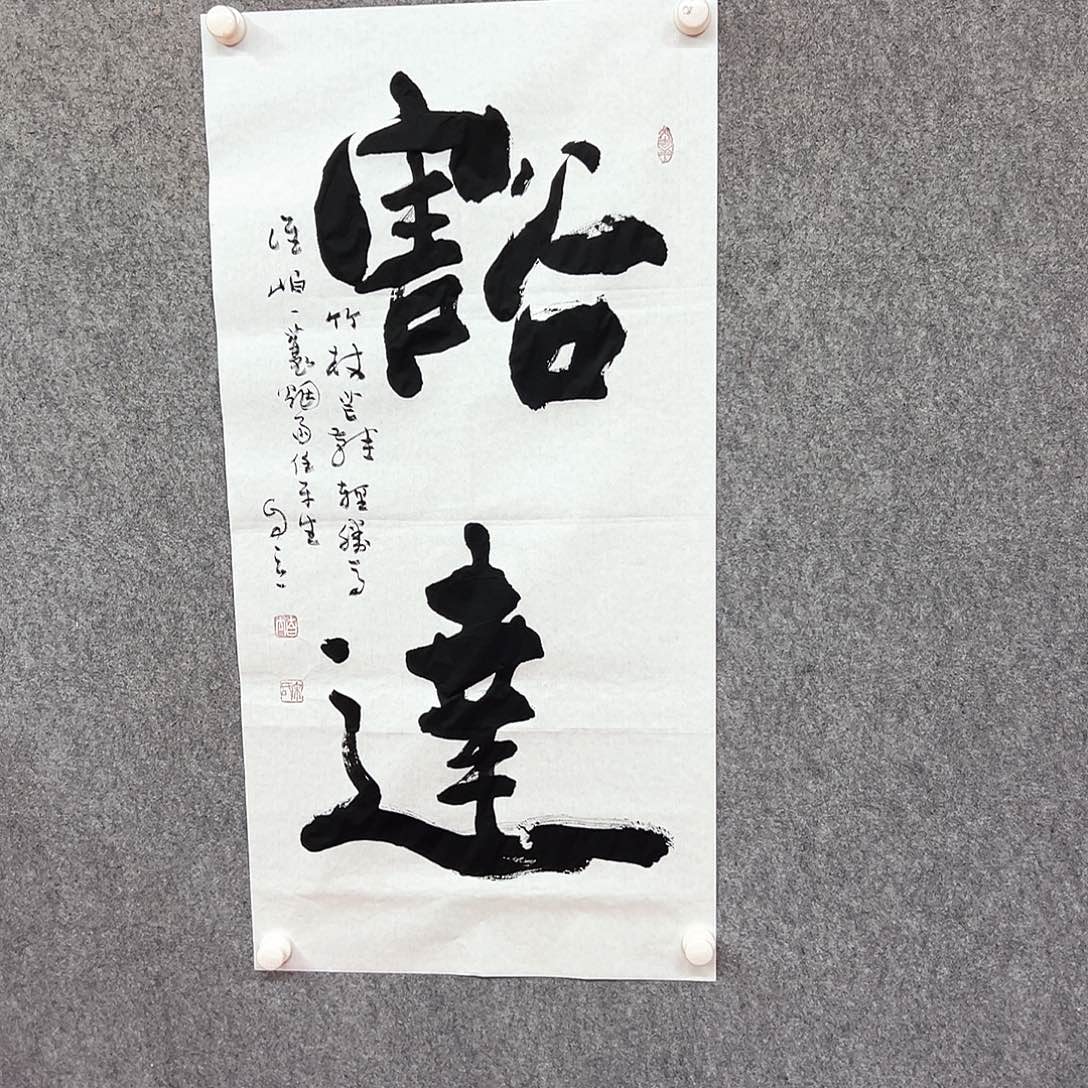 豁達
竹杖芒鞋輕勝馬
誰怕一蓑烟雨任平生